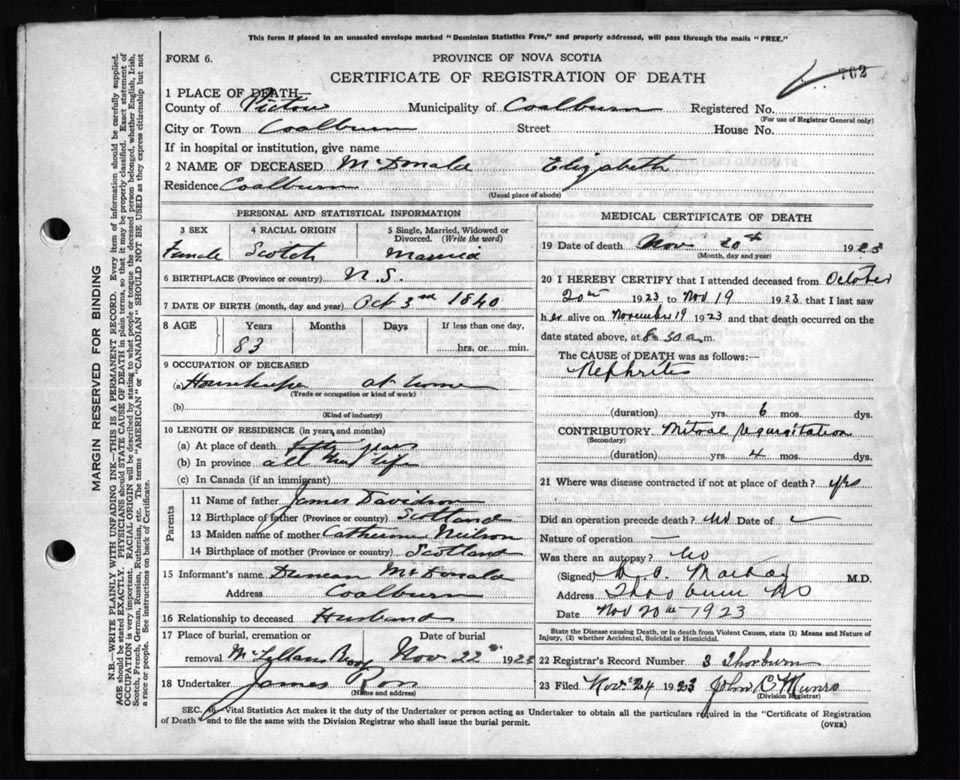 This form if placed in an unsealed envelope marked "Dominion Statistics Free," and properly addressed, will pass through the mails "FREE."
FORM 6.
PROVINCE OF NOVA SCOTIA
CERTIFICATE OF REGISTRATION OF DEATH
702
1 PLACE OF DEATH—
County of Pictou Municipality of Coalburn Registered No.
(For use of Registrar General only)
City or Town Coalburn Street House No.
If in hospital or institution, give name
2 NAME OF DECEASED McDonald Elizabeth
Residence Coalburn
(Usual place of abode)
PERSONAL AND STATISTICAL INFORMATION
3 SEX 4 RACIAL ORIGIN 5 Single, Married, Widowed or Divorced. (Write the word)
Female Scotch Married
6 BIRTHPLACE (Province or country) N.S.
7 DATE OF BIRTH (month, day and year) Oct 3rd 1840
8 AGE Years Months Days If less than one day,
83 hrs. or min.
9 OCCUPATION OF DECEASED
(a) at home
(Trade or occupation or kind of work)
(b)
(Kind of industry)
10 LENGTH OF RESIDENCE (in years and months)
(a) At place of death fifty years
(b) In province all life
(c) In Canada (if an immigrant)
Parents
11 Name of father James Davidson
12 Birthplace of father (Province or country) Scotland
13 Maiden name of mother Catherine Neilson
14 Birthplace of mother (Province or country) Scotland
15 Informant's name Duncan McDonald
Address Coalburn
16 Relationship to deceased Husband
17 Place of burial, cremation or Date of burial
removal McLellans Nov 22nd 1923
18 Undertaker James Ross
(Name and address)
MEDICAL CERTIFICATE OF DEATH
19 Date of death Nov 20th 1923
(Month, day and year)
20 I HEREBY CERTIFY that I attended deceased from October
20th 1923 to Nov 19 1923 that I last saw
her alive on November 19 1923 and that death occurred on
date stated above, at 8.30 a.m.
The CAUSE of DEATH was as follows:
Nephritis
(duration) yrs. 6 mos. dys.
CONTRIBUTORY Mitral regurgitation
(Secondary)
(duration) yrs. 4 mos. dys.
21 Where was disease contracted if not at place of death? yes
Did an operation precede death? no Date of
Nature of operation —
Was there an autopsy? no
(Signed) MacKay M.D.
Address Thorburn NS
Date Nov 20th 1923
State the Disease causing Death, or in death from Violent Causes, state (1) Means and Nature of
Injury, (2) whether Accidental, Suicidal or Homicidal.
22 Registrar's Record Number 3 Thorburn
23 Filed Nov. 24 1923 John C Munro
(Division Registrar)
SEC. 46—Vital Statistics Act makes it the duty of the Undertaker or person acting as Undertaker to obtain all the particulars required in the "Certificate of Registration
of Death" and to file the same with the Division Registrar who shall issue the burial permit.
(OVER)
MARGIN RESERVED FOR BINDING
N.B.—WRITE PLAINLY WITH UNFADING INK—THIS IS A PERMANENT RECORD. Every item of information should be carefully supplied.
AGE should be stated EXACTLY. PHYSICIANS should STATE CAUSE OF DEATH in plain terms, so that it may be properly classified. Exact statement of
OCCUPATION is very important. RACIAL ORIGIN will be described by stating to what people or tongue the deceased person belonged, whether English, Irish,
Scotch, French, German, Russian, Ruthenian, etc. The terms "AMERICAN" or "CANADIAN" SHOULD NOT BE USED as they express citizenship but not
a race or people. See instructions on back of Certificate.